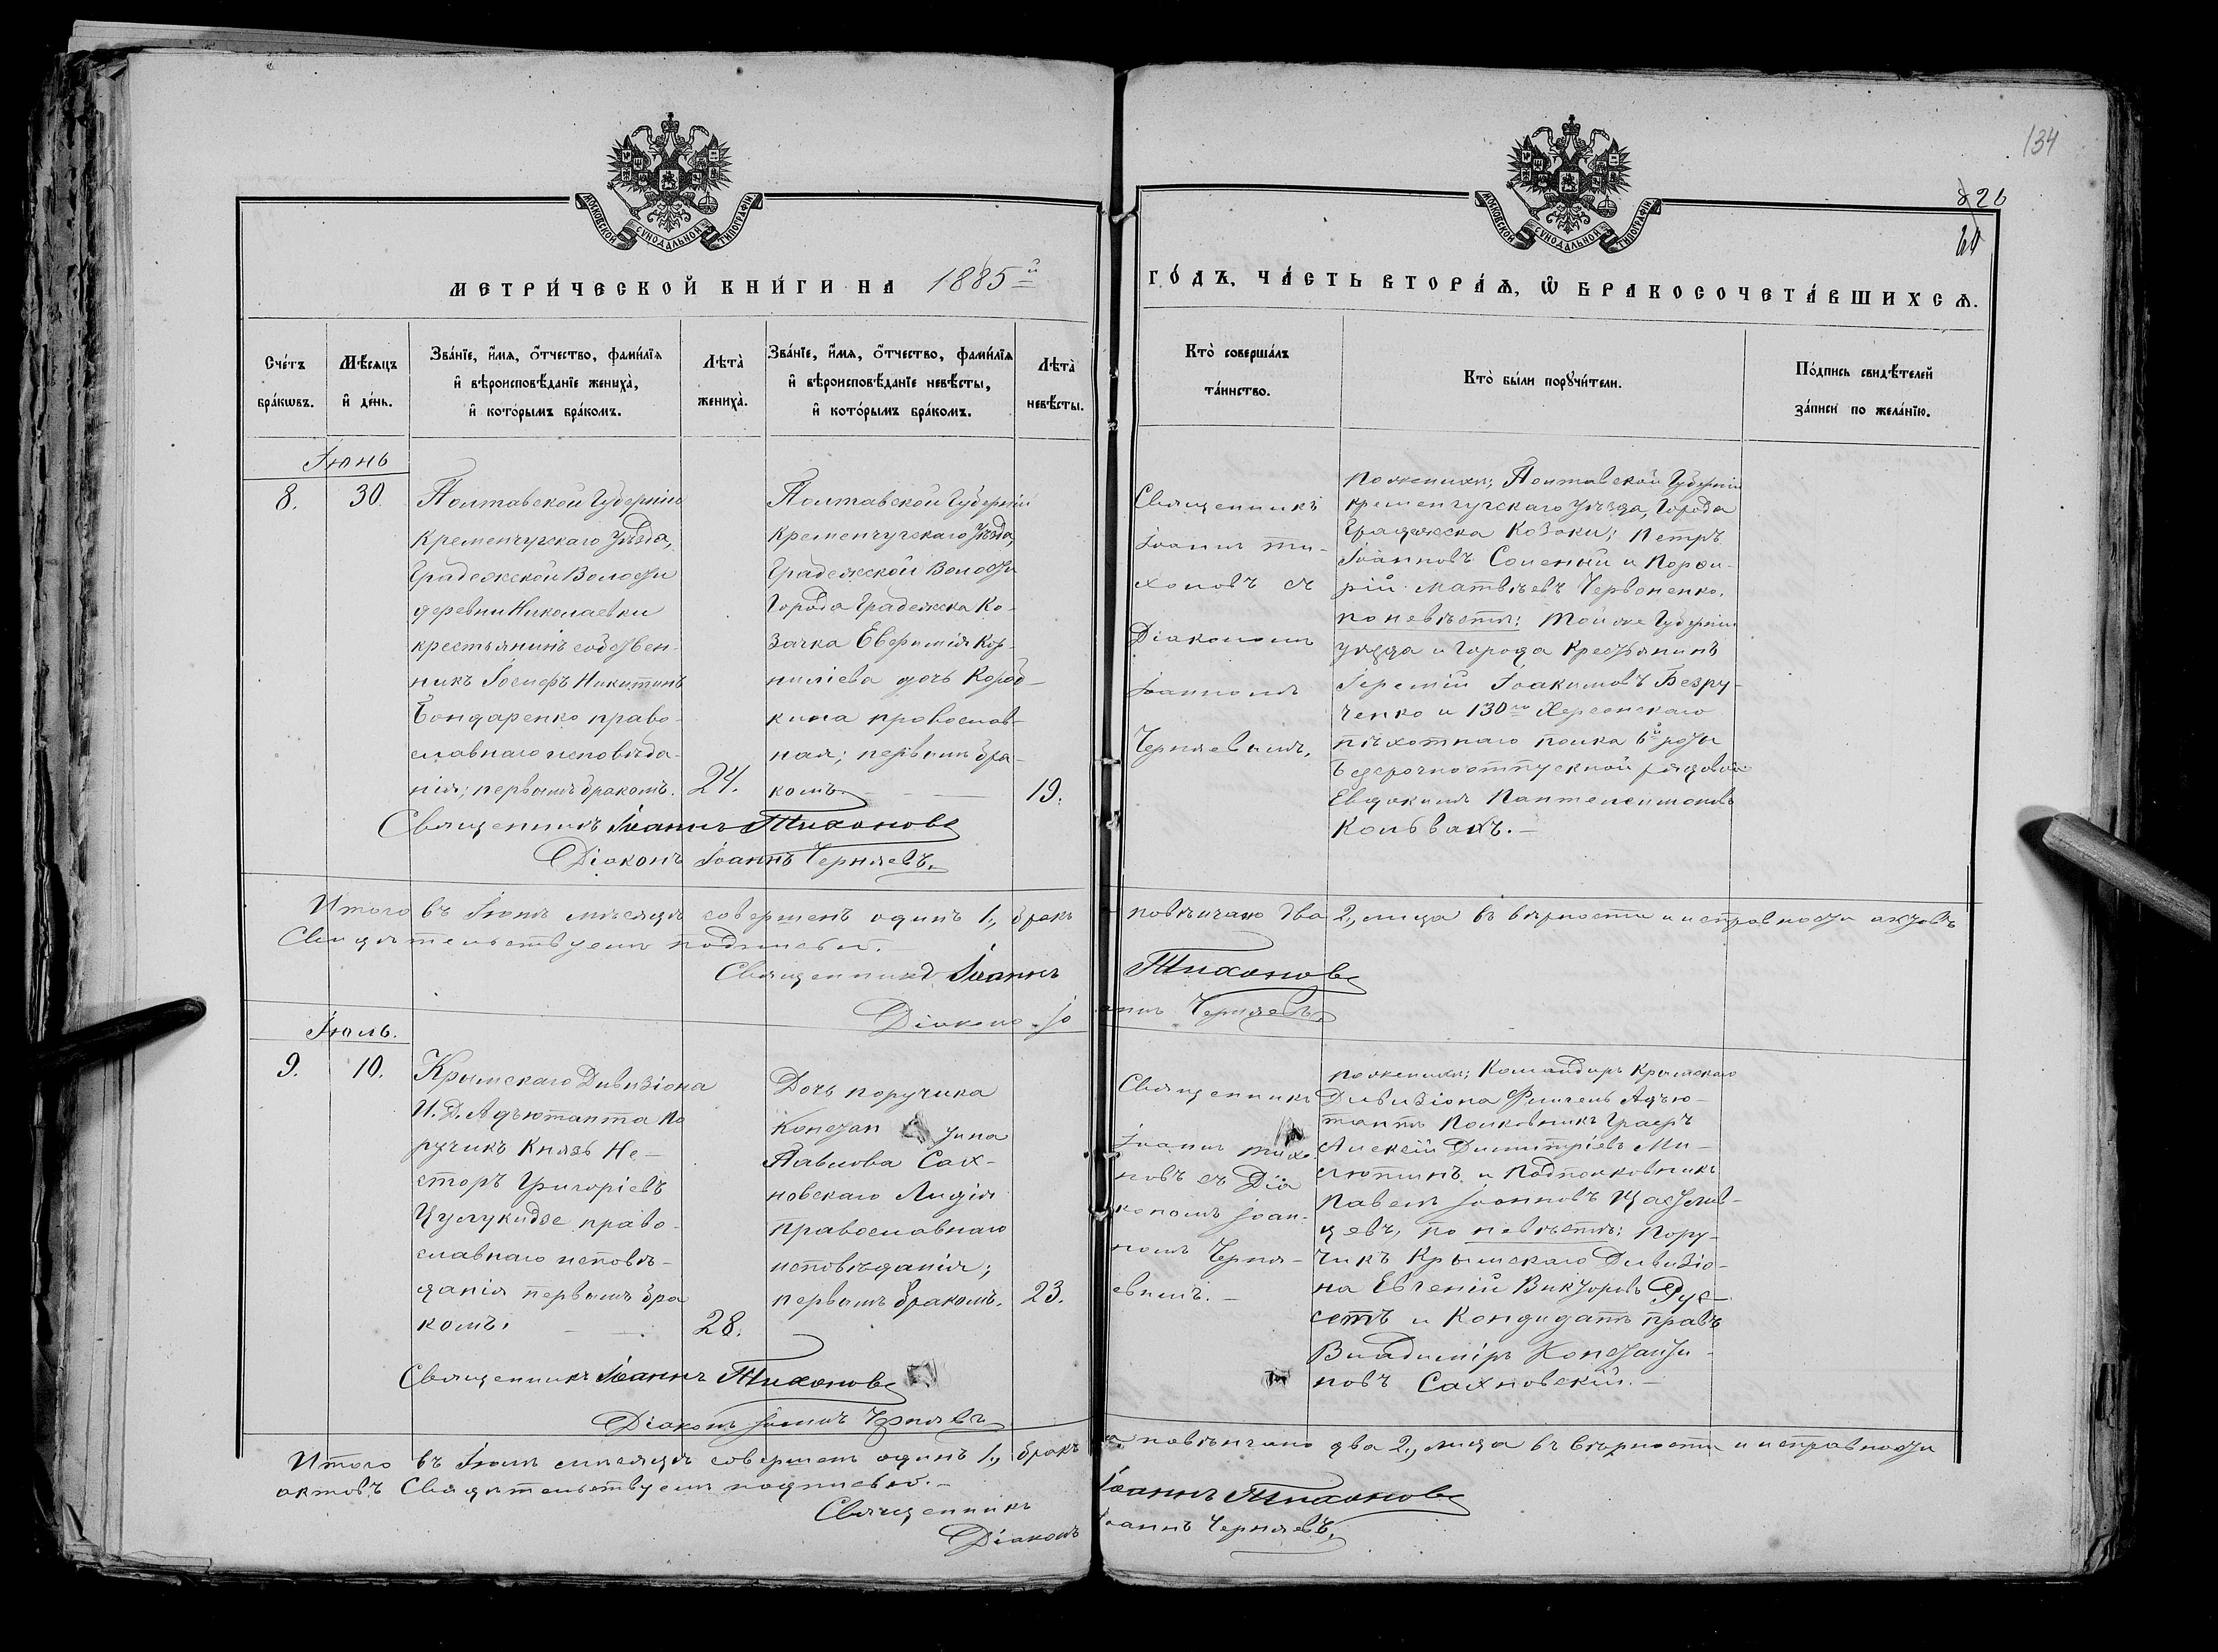 134
820
60
МОСКОВСКОЙ СѴНОДАЛЬНОЙ ТИПОГРАФІИ
МОСКОВСКОЙ СѴНОДАЛЬНОЙ ТИПОГРАФІИ
МЕТРИ́ЧЕСКОЙ КНИ́ГИ НА 1885й
ГО́ДЪ, ЧА́СТЬ ВТОРА́Ѧ, Ѡ҆ БРАКОСОЧЕТА́ВШИХСѦ.
Сче́тъ
бра́кѡвъ.
Мѣ́сяцъ
и҆ де́нь.
Зва́нїе, и҆́мя, ѻ҆́тчество, фами́лїя
и҆ вѣроисповѣ́данїе жениха̀,
и҆ кото́рымъ бра́комъ.
Лѣта̀
жениха̀.
Зва́нїе, и҆́мя, ѻ҆́тчество, фами́лїя
и҆ вѣроисповѣ́данїе невѣ́сты,
и҆ кото́рымъ бра́комъ.
Лѣта̀
невѣ́сты.
Кто̀ соверша́лъ
та́инство.
Кто̀ бы́ли порꙋчи́тели.
По́дпись свидѣ́телей
за́писи по жела́нїю.
Іюнь
8.
30.
Полтавской Губерніи
Кременчугскаго Уѣзда,
Градежской Волости
деревни Николаевки
крестьянинъ собствен-
никъ Іосифъ Никитинъ
Бондаренко право-
славнаго исповѣда-
нія; первымъ бракомъ.
24.
Полтавской Губерніи
Кременчугскаго Уѣзда,
Градежской Волости
Города Градежска Ко-
зачка Евфимія Кор-
нилієва дочь Короб-
кина православ-
ная; первымъ бра-
комъ.
19.
Священникъ
Іоаннъ Ти-
хоновъ съ
Діакономъ
Іоанномъ
Черняевымъ.
По женихѣ; Полтавской Губерніи
Кременчугскаго уѣзда, Города
Градежска Козаки; Петръ
Іоанновъ Соленый и Порфи-
рій Матвѣевъ Червоненко.
по невѣстѣ: той же Губерніи
уѣзда и Города Крестьянинъ
Іеремій Іоакимовъ Безру-
ченко и 130го Херсонскаго
пѣхотнаго полка 6й роты
безсрочноотпускной рядовой
Евдокимъ Пантелеимоновъ
Колбвахъ.
Священникъ Іоаннъ Тихоновъ
Діаконъ Іоаннъ Черняевъ.
Итого въ Іюнѣ мѣсяцѣ совершенъ одинъ 1., бракъ повѣнчано два 2., лица въ вѣрности и исправности актовъ
Свидѣтельствуемъ подписью.
Священникъ Іоаннъ Тихоновъ
Діаконъ Іоаннъ Черняевъ.
Іюль.
9.
10.
Крымскаго Дивизіона
И. Д. Адъютанта По
ручикъ Князь Не-
сторъ Григоріевъ
Цулукидзе право-
славнаго исповѣ-
данія первымъ бра
комъ.
28.
Дочь поручика
Констан тина
Павлова Сах-
новскаго Лидія
православнаго
исповѣданія;
первымъ бракомъ.
23.
Священникъ
Іоаннъ Тихо
новъ съ Діа
кономъ Іоан-
номъ Черня-
евымъ.
По женихѣ; Командиръ Крымскаго
Дивизіона Флигель Адъю-
тантъ Полковникъ Графъ
Алексѣй Димитріевъ Ми-
лютинъ и Подполковникъ
Павелъ Іоанновъ
цевъ, по невѣстѣ: Пору-
чикъ Крымскаго Дивизіо-
на Евгеній Викторовъ Рус-
сетъ и Кандидатъ правъ
Владиміръ Константи-
новъ Сахновскій.
Священникъ Іоаннъ Тихоновъ
Діаконъ Іоаннъ Черняевъ
Итого въ Іюлѣ мѣсяцѣ совершенъ одинъ 1., бракъ повѣнчано два 2., лица въ вѣрности и исправности
актовъ Свидѣтельствуемъ подписью.
Священникъ Іоаннъ Тихоновъ
Діаконъ Іоаннъ Черняевъ.